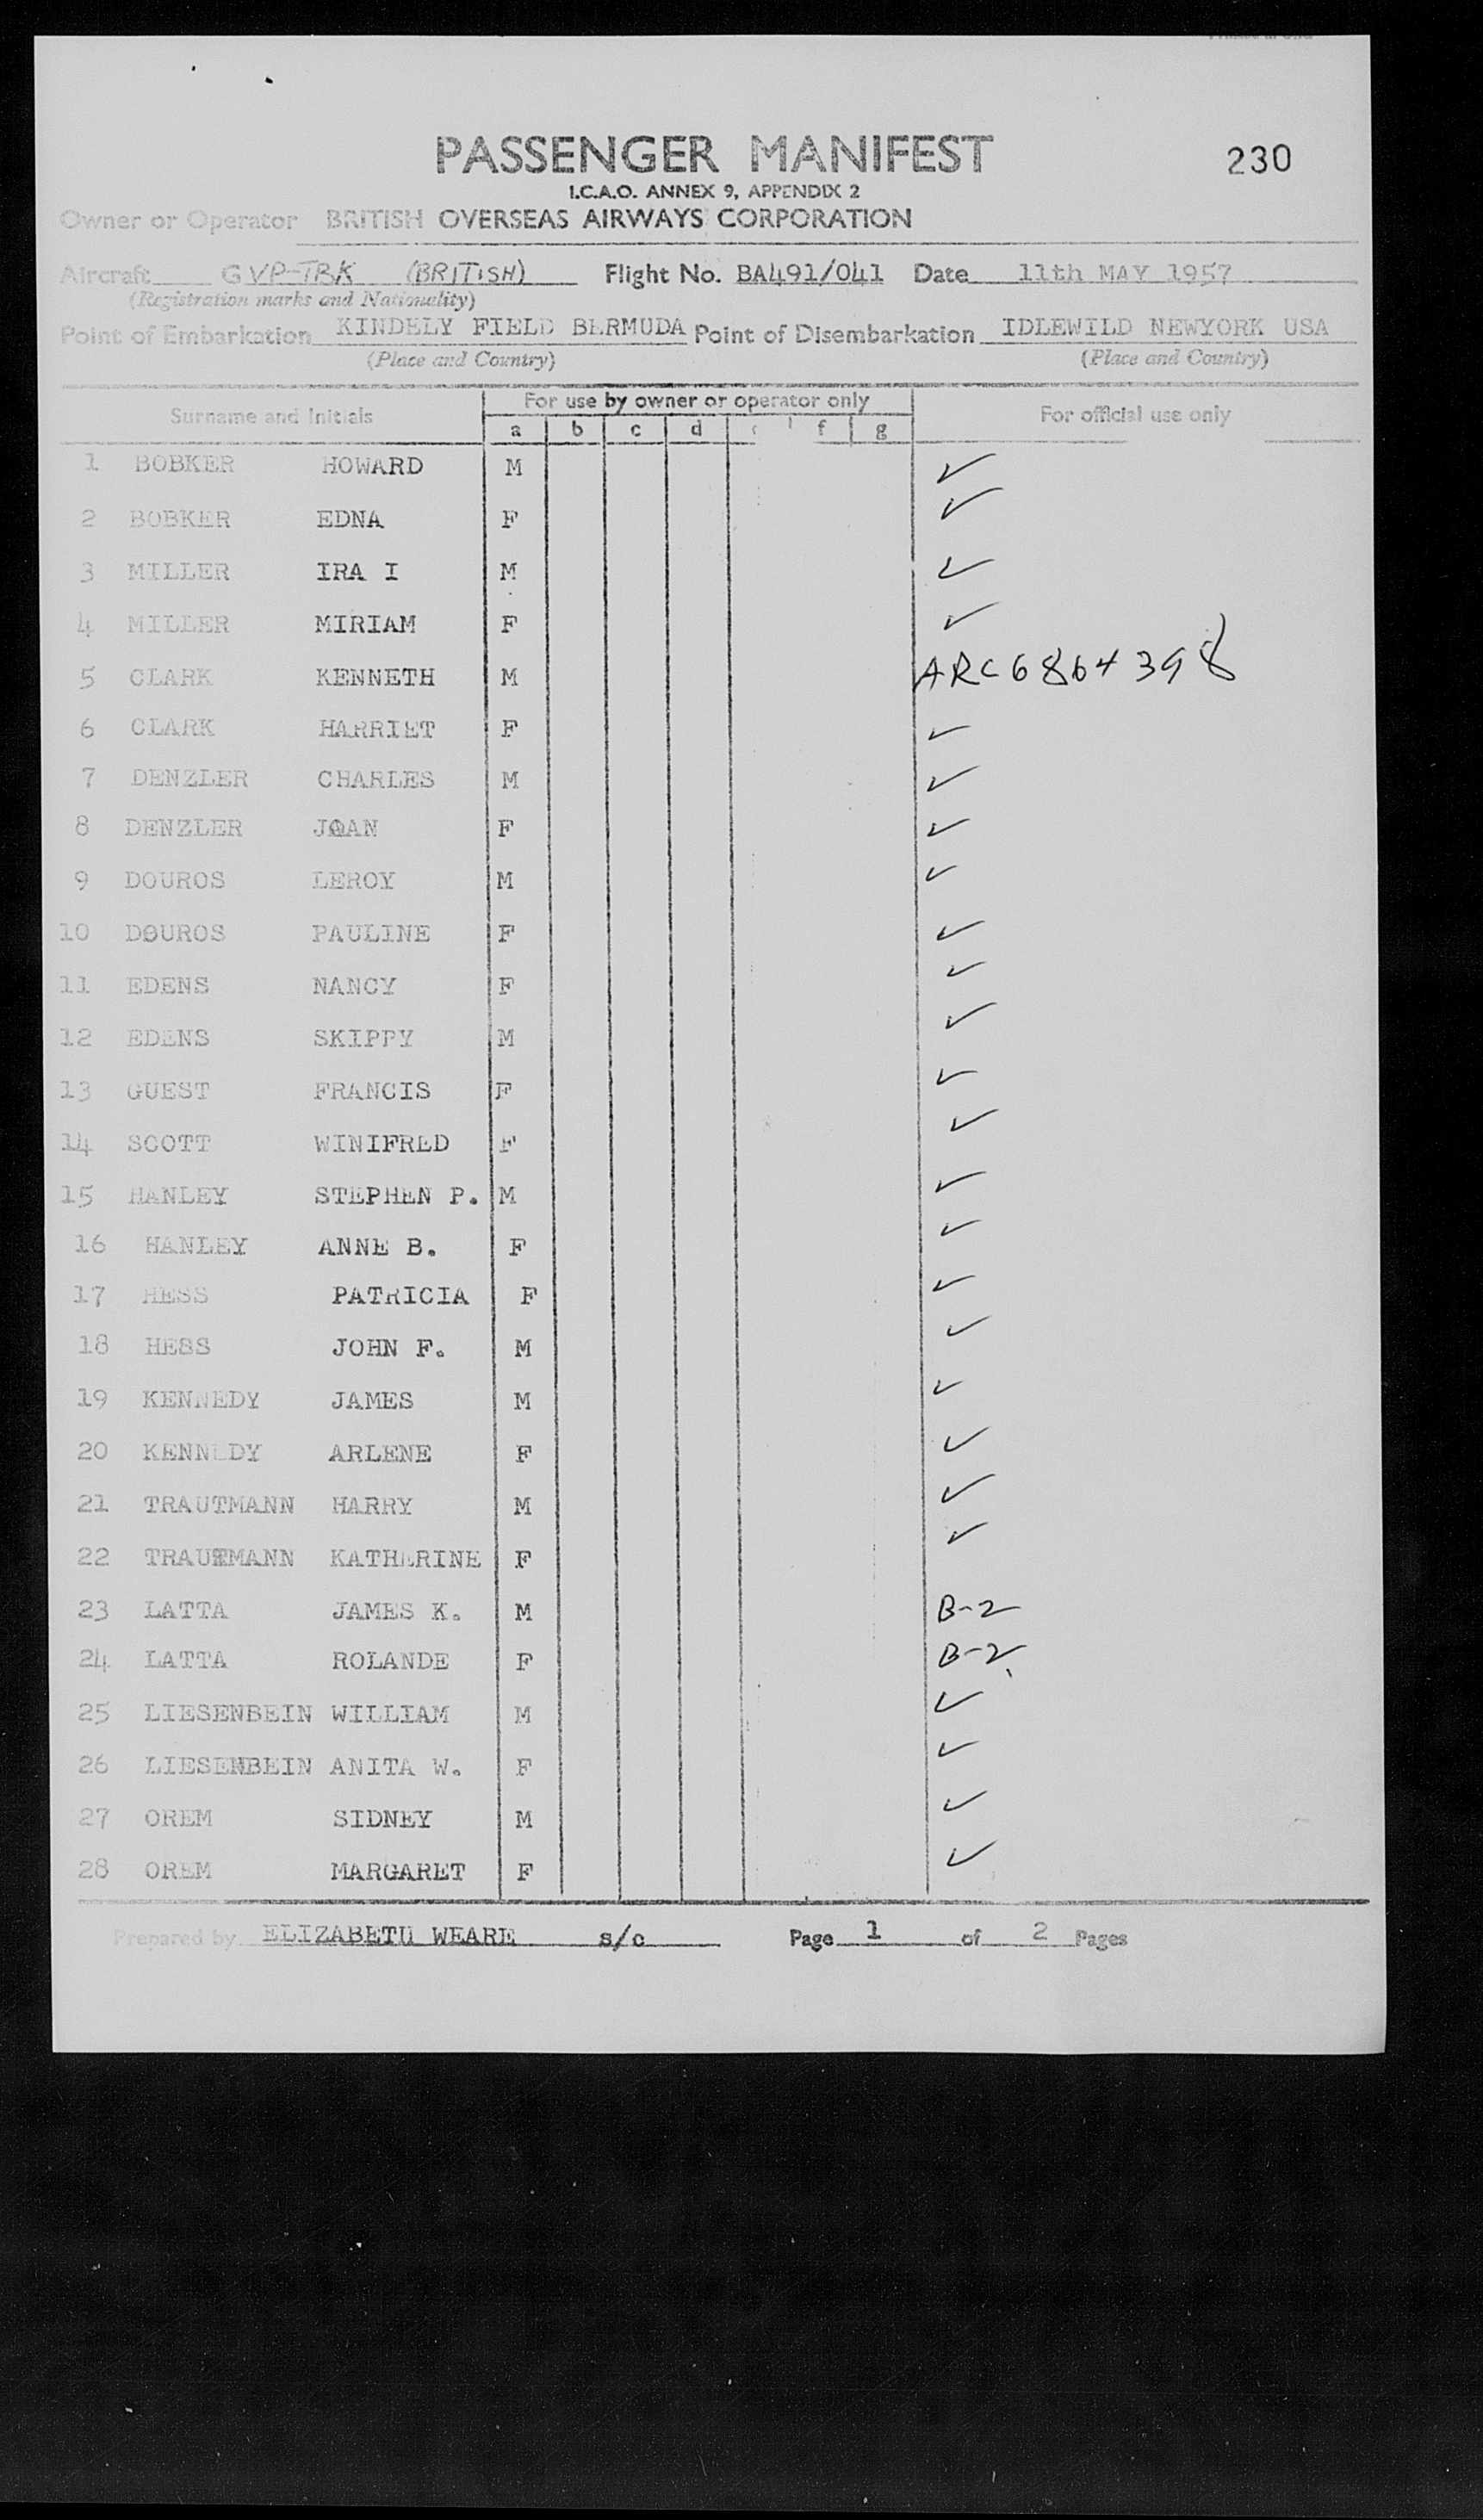 PASSENGER MANIFEST 230
I.C.A.O. ANNEX 9, APPENDIX 2
Owner or Operator BRITISH OVERSEAS AIRWAYS CORPORATION
Aircraft GVP-TBK (BRITISH) Flight No. BA491/041 Date 11th MAY 1957
(Registration marks and Nationality)
Point of Embarkation KINDELY FIELD BERMUDA Point of Disembarkation IDLEWILD NEWYORK USA
(Place and Country) (Place and Country)
Surname and Initials For use by owner or operator only For official use only
a b c d f g
1 BOBKER HOWARD M ✓
2 BOBKER EDNA F ✓
3 MILLER IRA I M ✓
4 MILLER MIRIAM F ✓
5 CLARK KENNETH M ARC 6864398
6 CLARK HARRIET F ✓
7 DENZLER CHARLES M ✓
8 DENZLER JOAN F ✓
9 DOUROS LEROY M ✓
10 DOUROS PAULINE F ✓
11 EDENS NANCY F ✓
12 EDENS SKIPPY M ✓
13 GUEST FRANCIS F ✓
14 SCOTT WINIFRED F ✓
15 HANLEY STEPHEN P. M ✓
16 HANLEY ANNE B. F ✓
17 HESS PATRICIA F ✓
18 HESS JOHN F. M ✓
19 KENNEDY JAMES M ✓
20 KENNEDY ARLENE F ✓
21 TRAUTMANN HARRY M ✓
22 TRAUTMANN KATHERINE F ✓
23 LATTA JAMES K. M B-2
24 LATTA ROLANDE F B-2
25 LIESENBEIN WILLIAM M ✓
26 LIESENBEIN ANITA W. F ✓
27 OREM SIDNEY M ✓
28 OREM MARGARET F ✓
Prepared by ELIZABETH WEARE s/c Page 1 of 2 Pages